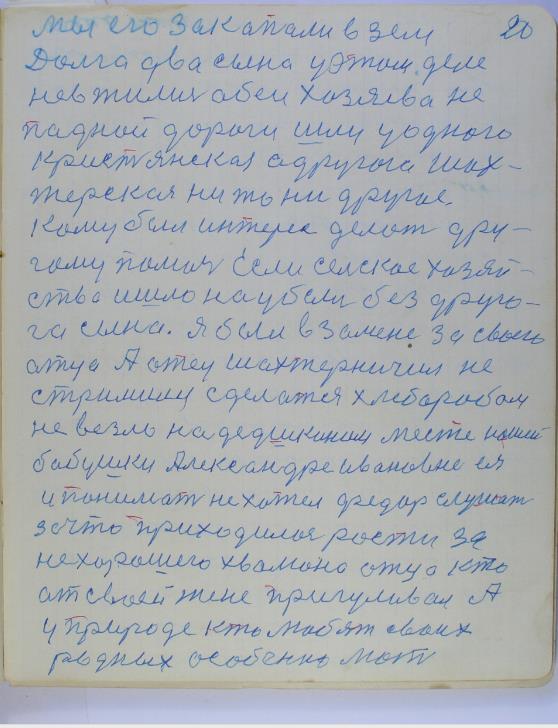 20
мы его закапали в зем
Долга два сына у этом деле
невжилия обеи хозяева не
паdной дороги шли у одного
кристянская а другога шах-
терская ни то ни другое
кому был интерес делат дру-
гому помоч Если селское хозяй-
ство ишло наубыл без друго-
га сына. я был в замене за своего
отца А отец шахтерничил не
стримилця сделатся хлибаробом
не везло на дедшкином месте нашей
бабушки Александре ивановне ея
и понимат не хотел федар слушат
зачто приходился рости за
нехорошего хвамона отца кто
от своей жене пригуливал А
у природе кто любят своих
родных особенно мат